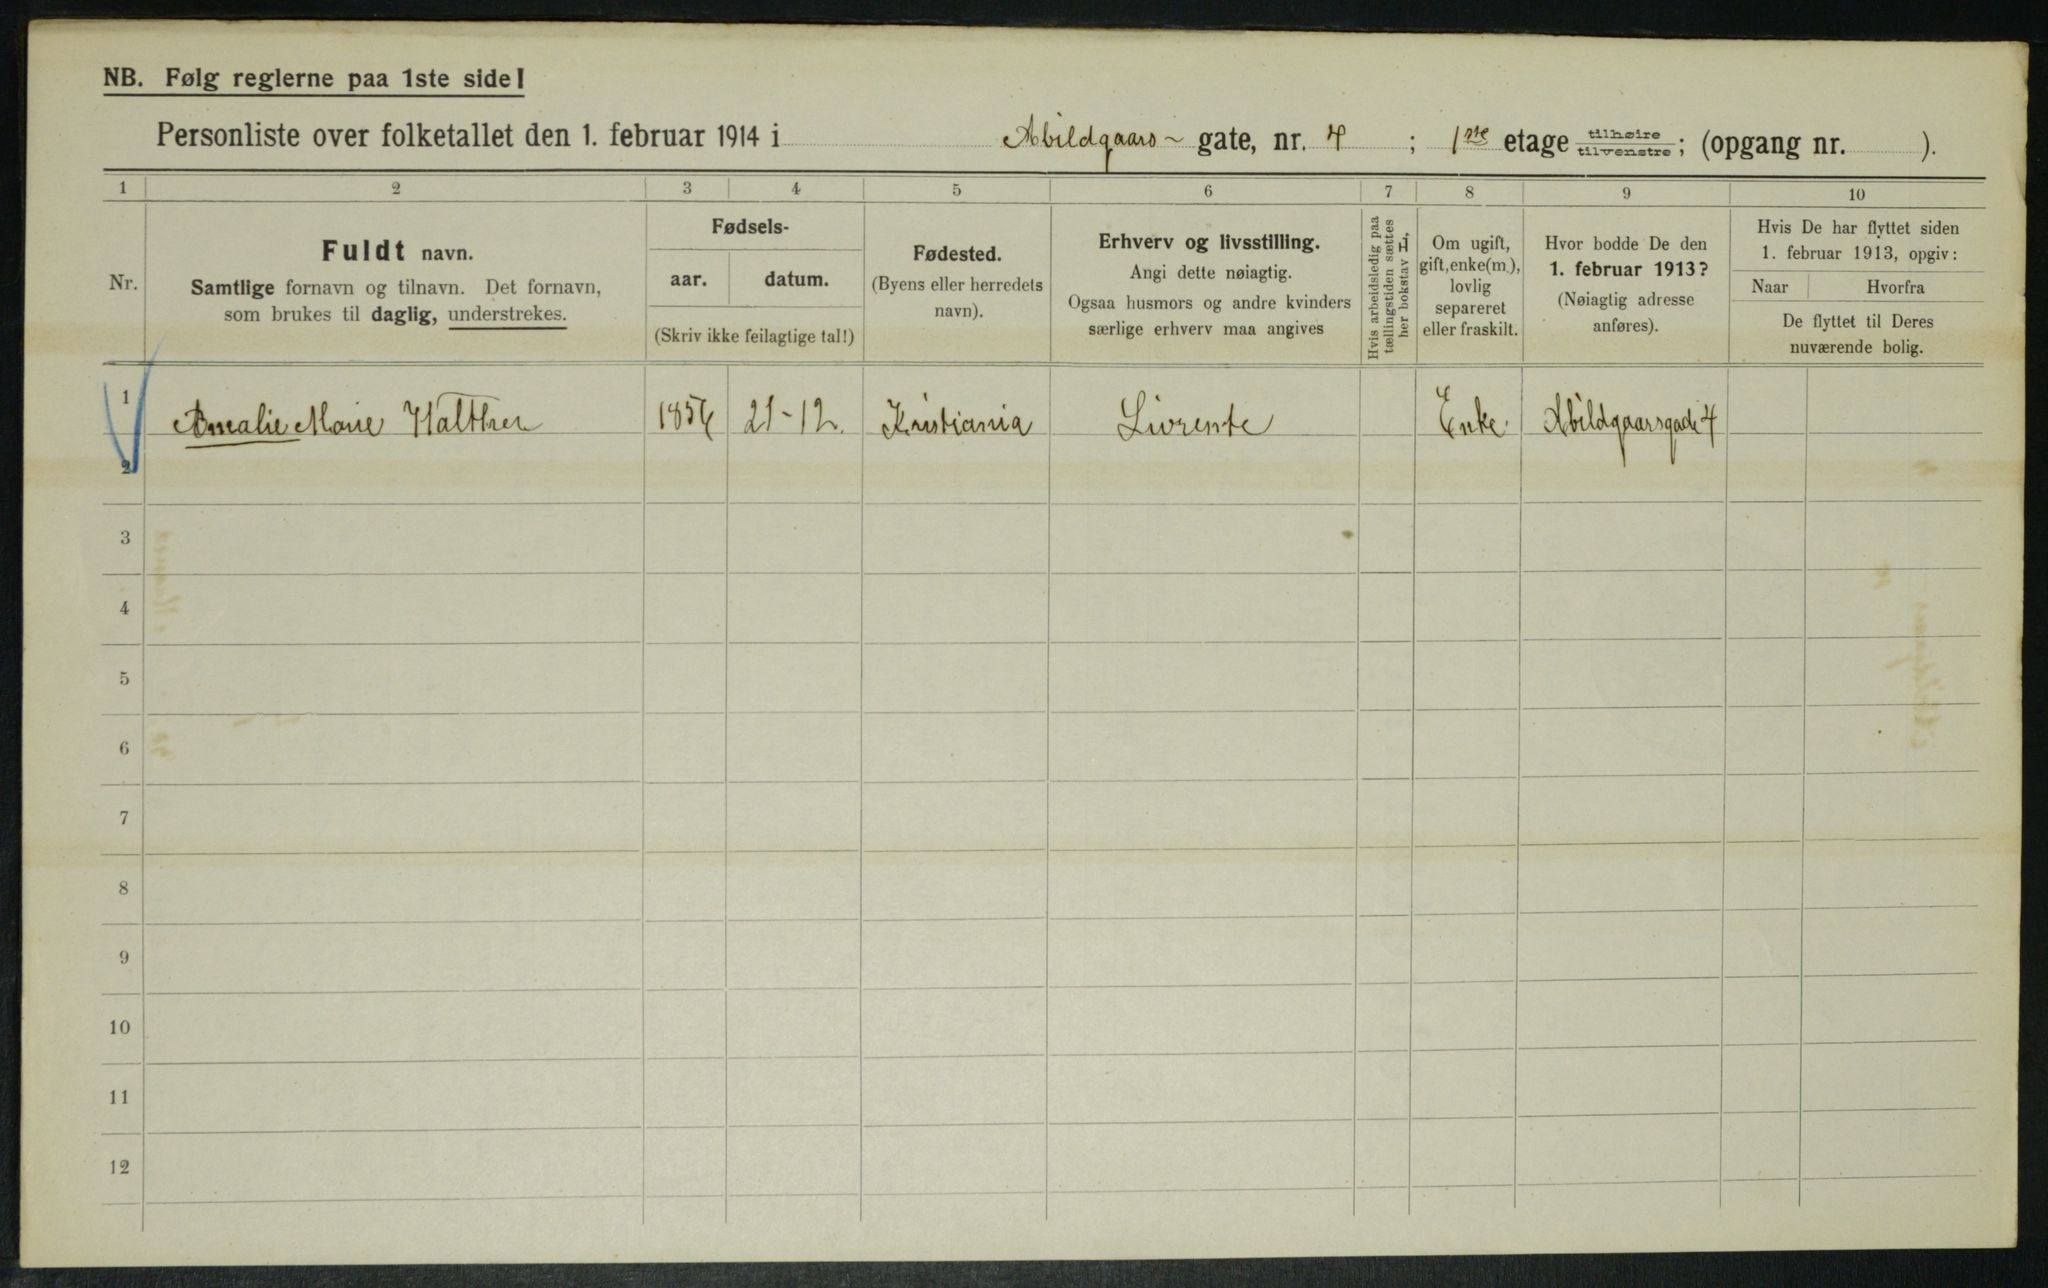 NB. Følg reglerne paa 1ste side!
Personliste over folketallet den 1. februar 1914 i Abildgaars- gate, nr. 4 ; 1ste etage tilhøire tilvenstre ; (opgang nr. ).
1 2 3 4 5 6 7 8 9 10
Nr.
Fuldt navn.
Samtlige fornavn og tilnavn. Det fornavn,
som brukes til daglig, understrekes.
Fødsels-
aar. datum.
(Skriv ikke feilagtige tal!)
Fødested.
(Byens eller herredets
navn).
Erhverv og livsstilling.
Angi dette nøiagtig.
Ogsaa husmors og andre kvinders
særlige erhverv maa angives
Hvis arbeidsledig paa
tællingstiden sættes
her bokstav L,
Om ugift,
gift, enke(m.),
lovlig
separeret
eller fraskilt.
Hvor bodde De den
1. februar 1913?
(Nøiagtig adresse
anføres).
Hvis De har flyttet siden
1. februar 1913, opgiv:
Naar Hvorfra
De flyttet til Deres
nuværende bolig.
1 Amalie Marie Walther 1856 21-12. Kristiania Livrente Enke. Abildgaarsgade 4
2
3
4
5
6
7
8
9
10
11
12